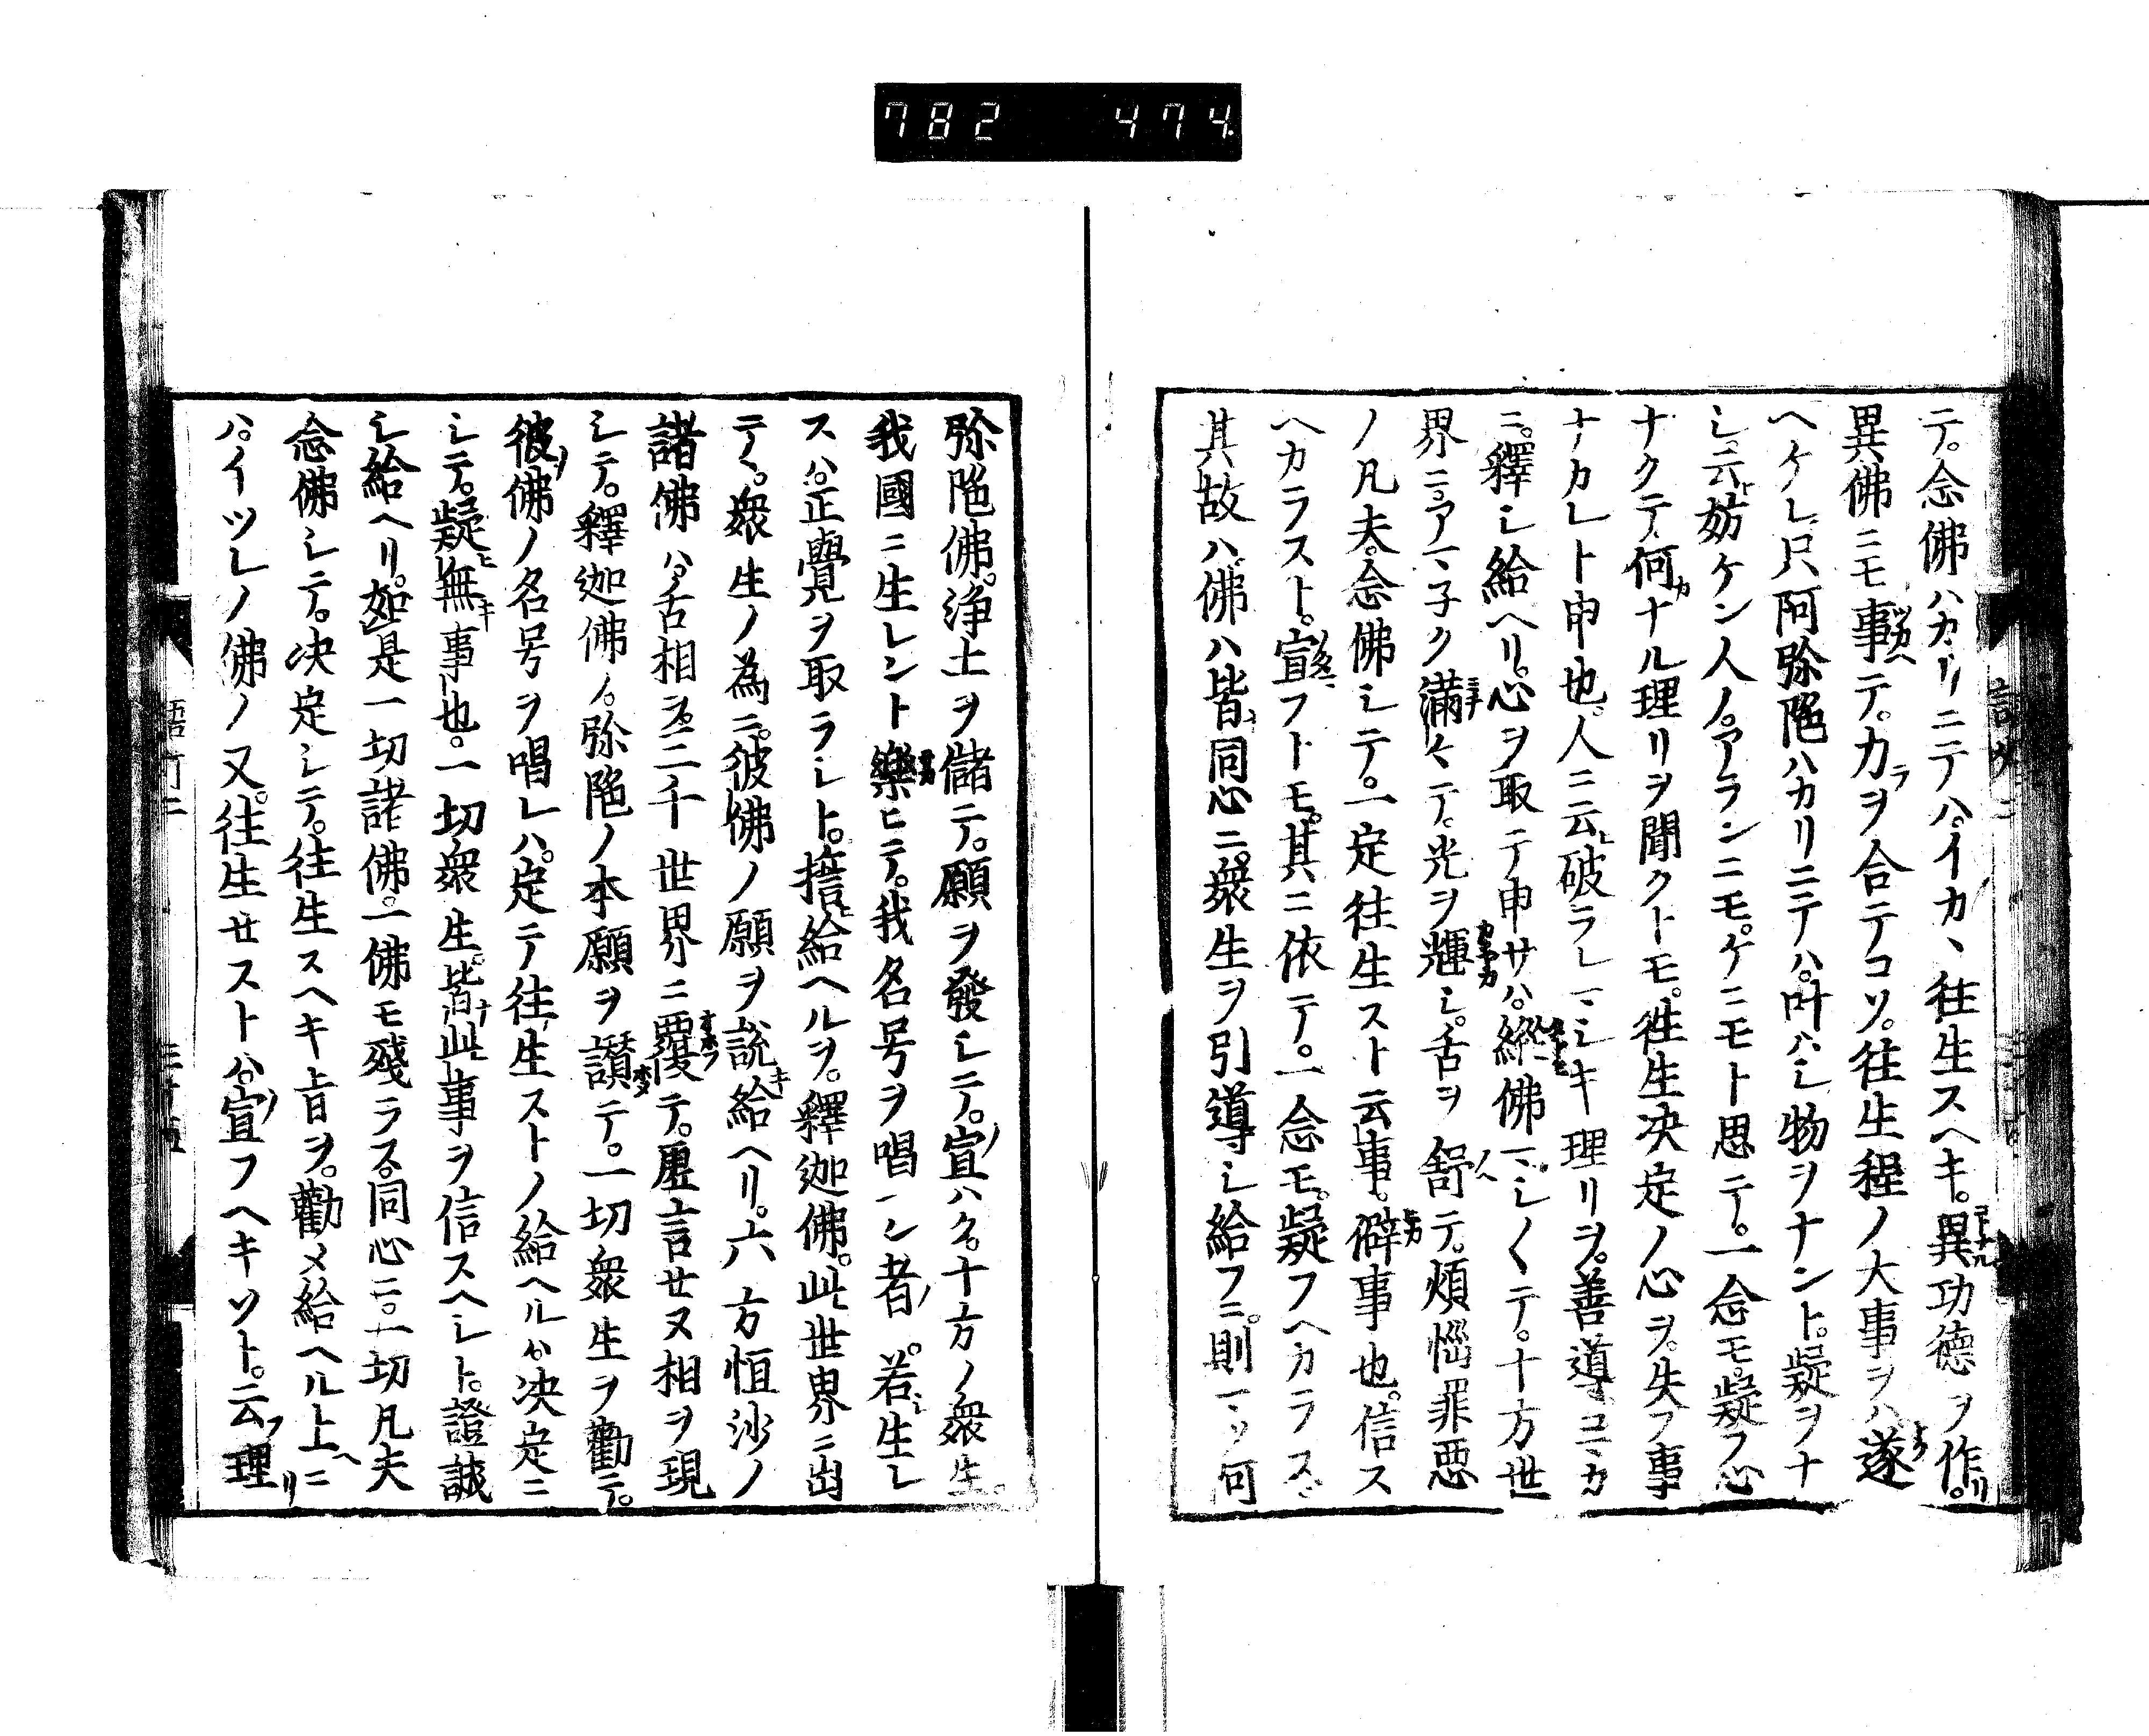 782 474
テ。念佛ハカリニテハ。イカヽ往生スヘキ。異功德ヲ作リ。
異佛ニモ事ツカヘテ。力ラヲ合テコソ。往生程ノ大事ヲハ遂
ヘケレ。只阿弥陀ハカリニテハ。叶ハシ物ヲナント。疑ヲナ
シ。云ヒ妨ケン人ノ。アランニモ。ケニモト思テ。一念モ。疑フ心
ナクテ。何カナル理リヲ聞クトモ。往生决定ノ心ヲ。失フ事
ナカレト申也。人ニ云ヒ破ラレマシキ理リヲ。善導コマカ
ニ。釋シ給ヘリ。心ヲ取テ申サハ。縱佛マシ〱テ。十方世
界ニ。アマ子ク滿ミチ〱テ。光ヲ輝カヽヤカシ。舌ヲ舒ヘテ。煩惱罪悪
ノ凡夫。念佛シテ。一定往生スト云事。僻ヒカ事也。信ス
ヘカラスト。宣フトモ。其ニ依テ。一念モ。疑フヘカラス。
其故ハ。佛ハ皆同心ニ。衆生ヲ引導シ給フニ。則マツ何
弥陀佛。浄土ヲ儲テ。願ヲ發シテ。宣ハク。十方ノ衆生。
我國ニ生レント樂ヒテ。我名号ヲ唱ヘン者ノ。若シ生レ
スハ。正覺ヲ取ラシト。誓ヒ給ヘルヲ。釋迦佛。此世界ニ出
テヽ。衆生ノ為ニ。彼佛ノ願ヲ説キ給ヘリ。六方恒沙ノ
諸佛ハ。舌相ヲ。三千世界ニ覆オホフテ。虚言セヌ相ヲ現
シテ。釋迦佛ノ。弥陀ノ本願ヲ讃ホメテ。一切衆生ヲ勸テ。
彼ノ佛ノ名号ヲ唱レハ。定テ往生ストノ給ヘルハ。决定ニ
シテ。疑ヒ無キ事也。一切衆生。皆ナ此事ヲ信スヘシト。證誠
シ給ヘリ。如是一切諸佛。一佛モ殘ラス。同心ニ。一切凡夫
念佛シテ。决定シテ。往生スヘキ旨ヲ。勸メ給ヘル上ヘニ
ハ。イツレノ佛ノ又。往生セストハ。宣ノフヘキソト。云フ理リ